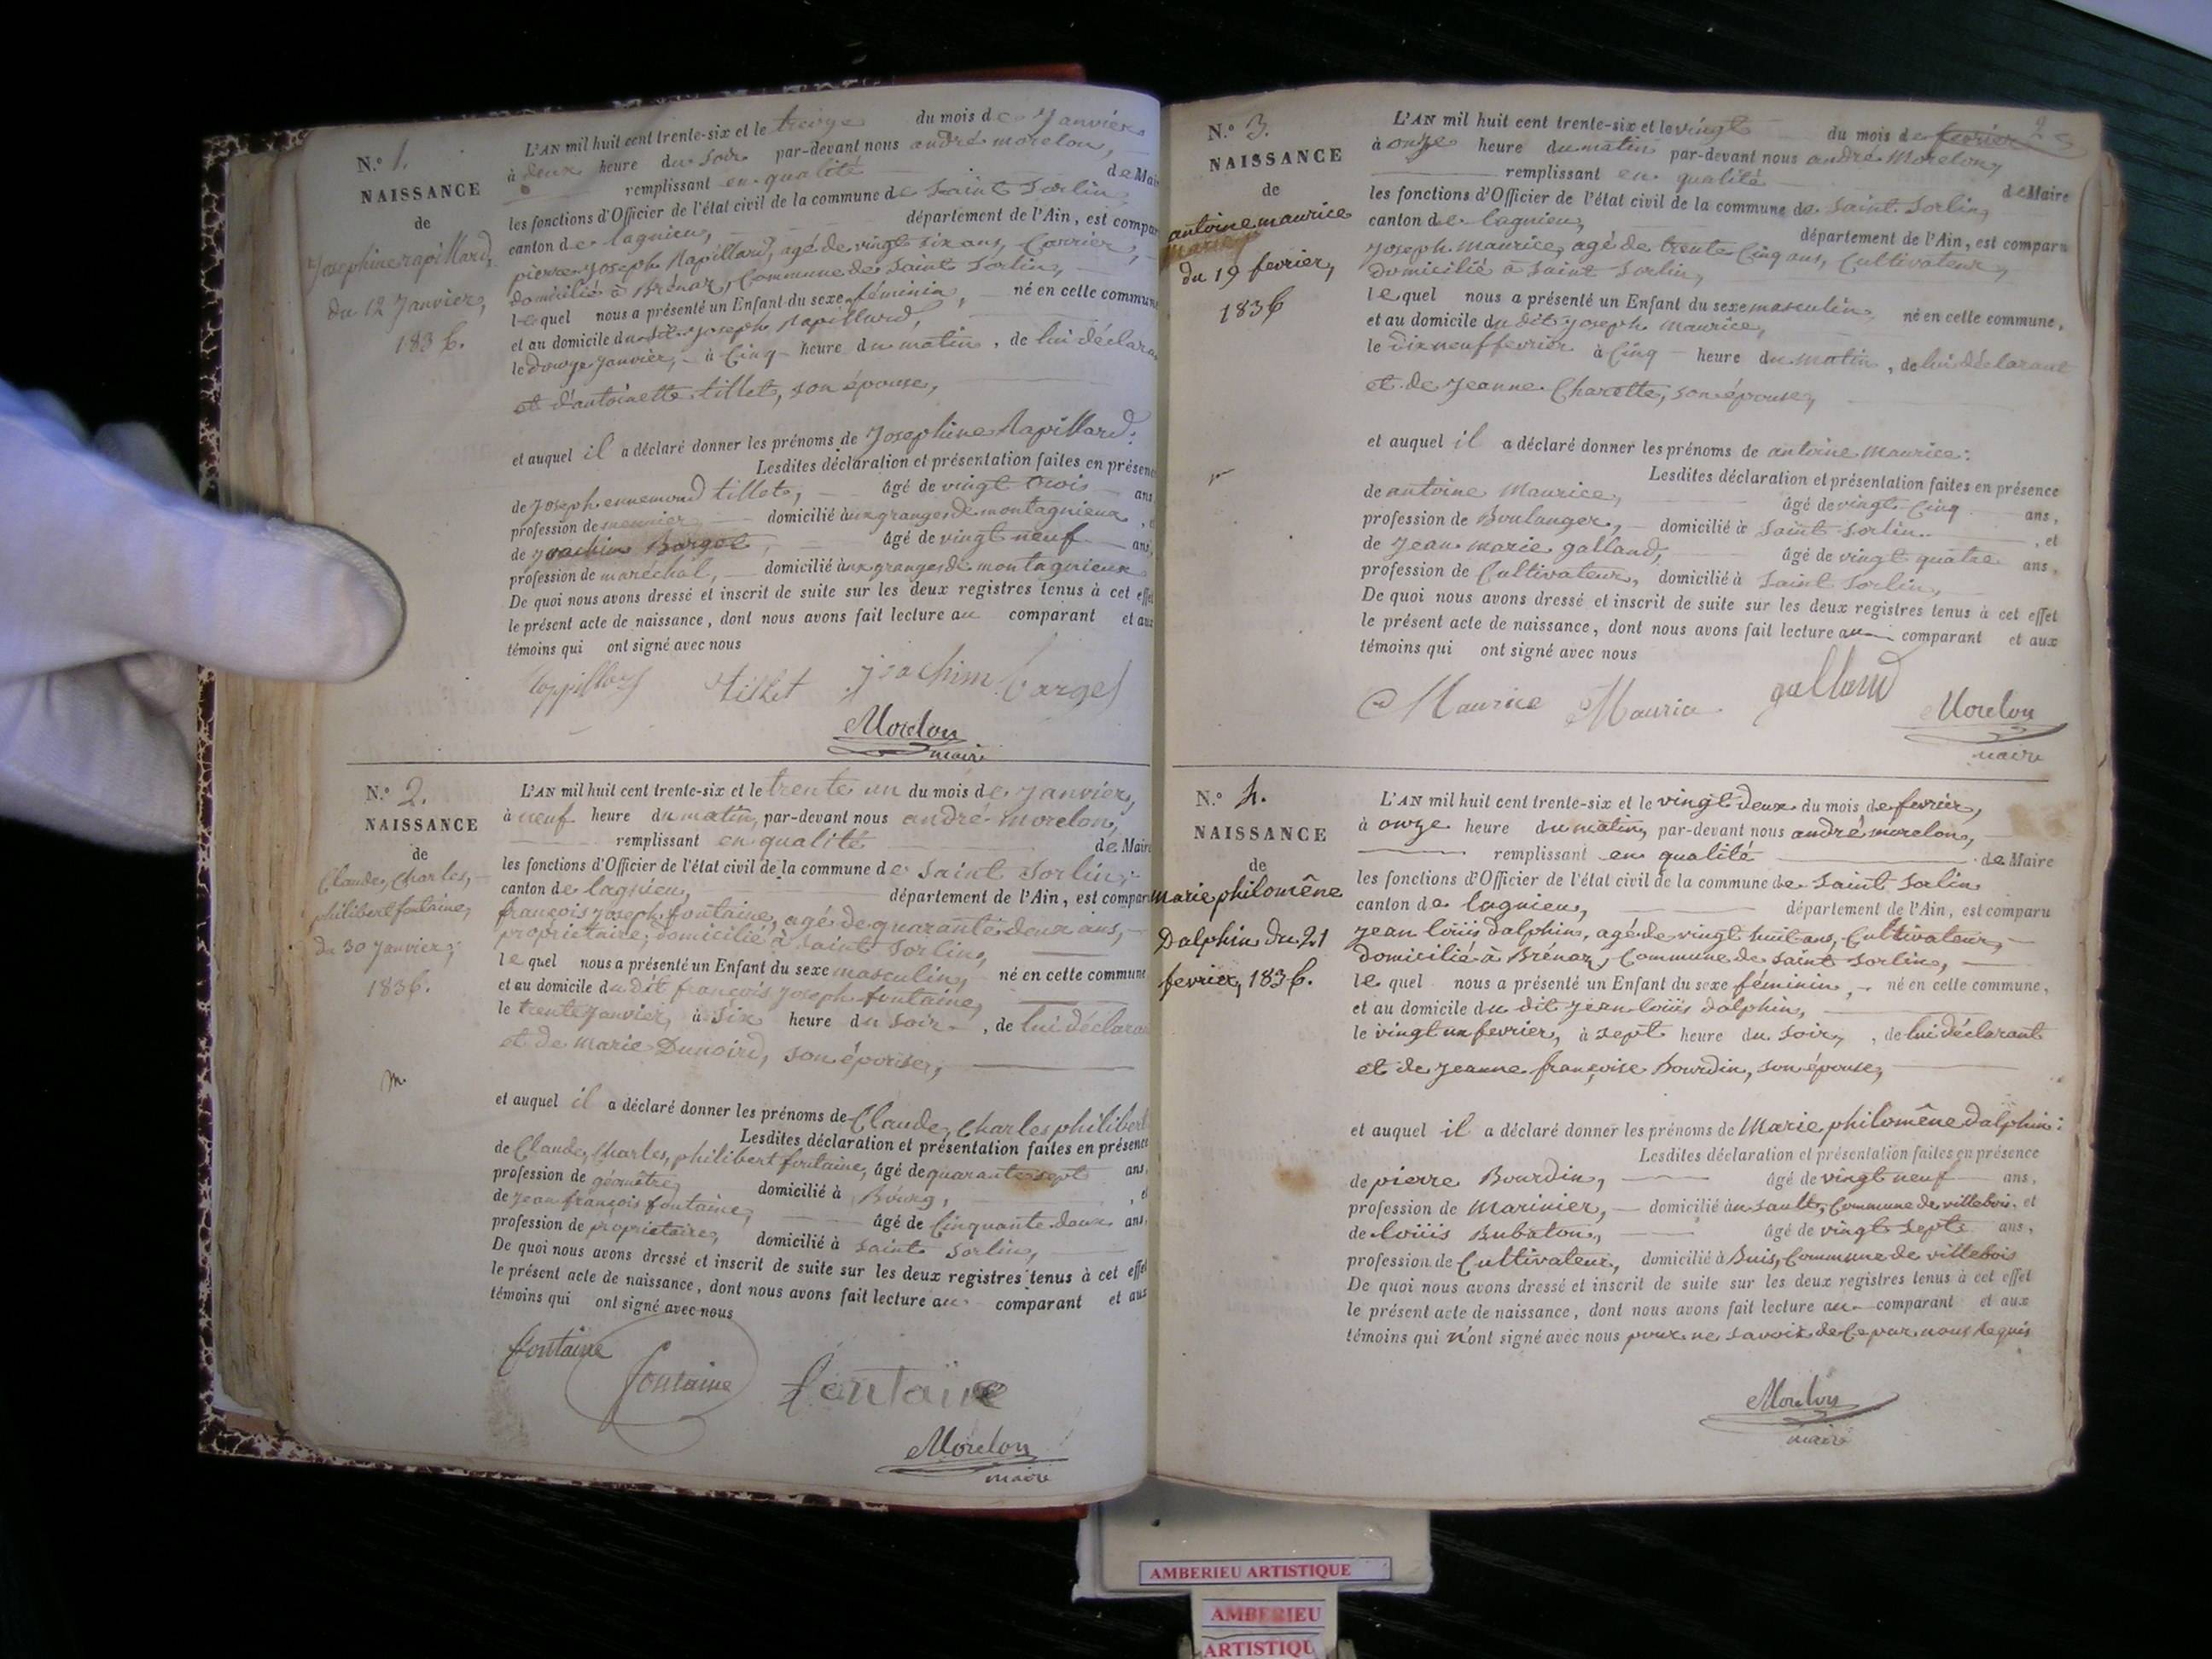 N.° 1.
NAISSANCE
de
Josephine rapillard,
du 12 Janvier,
1836.
L'AN mil huit cent trente-six et le treize du mois de Janvier
à deux heure du soir par-devant nous andré morelon,
remplissant en qualité de Mai
les fonctions d'Officier de l'état civil de la commune de Saint Sorlin,
canton de lagnieu, département de l'Ain, est compar
pierre Joseph Rapillard, agé de vingt six ans, Carrier,
domicilié à Brénaz, Commune de Saint Sorlin,
lequel nous a présenté un Enfant du sexe féminin, né en cette commune
et au domicile du dit Joseph Rapillard,
le douze Janvier, à Cinq heure du matin, de lui déclara
et d'antoinette tillet, son épouse,
et auquel il a déclaré donner les prénoms de Josephine Rapillard:
Lesdites déclaration et présentation faites en présen
de Joseph ennemond tillet, âgé de vingt trois ans
profession de meunier, domicilié aux granges de montagnieux, e
de Joachim Bargel, âgé de vingt neuf ans,
profession de maréchal, domicilié aux granges de montagnieux
De quoi nous avons dressé et inscrit de suite sur les deux registres tenus à cet effet
le présent acte de naissance, dont nous avons fait lecture au comparant et aux
témoins qui ont signé avec nous
tillet Joachim bargel
Morelon
maire
N.° 2.
NAISSANCE
de
Claude, Charles,
philibert fontaine,
du 30 Janvier,
1836.
m.
L'AN mil huit cent trente-six et le trente un du mois de Janvier,
à neuf heure du matin, par-devant nous andré morelon,
remplissant en qualité de Maire
les fonctions d'Officier de l'état civil de la commune de Saint Sorlin,
canton de lagnieu, département de l'Ain, est compar
françois Joseph fontaine, agé de quarante deux ans,
proprietaire, domicilié à Saint Sorlin,
lequel nous a présenté un Enfant du sexe masculin, né en cette commune
et au domicile du dit françois Joseph fontaine,
le trente Janvier, à Six heure du soir, de lui déclaran
et de marie Dunoird, son épouse,
et auquel il a déclaré donner les prénoms de Claude, Charles philibert
Lesdites déclaration et présentation faites en présence
de Claude, Charles, philibert fontaine, âgé de quarante sept ans,
profession de géomêtre, domicilié à Bourg, , et
de jean françois fontaine, âgé de Cinquante deux ans,
profession de proprietaire, domicilié à Saint Sorlin,
De quoi nous avons dressé et inscrit de suite sur les deux registres tenus à cet effet
le présent acte de naissance, dont nous avons fait lecture au comparant et aux
témoins qui ont signé avec nous
fontaine fontaine fontaine
Morelon
maire
2
N.° 3.
NAISSANCE
de
antoine maurice
du 19 fevrier,
1836
L'AN mil huit cent trente-six et le vingt du mois de fevrier
à onze heure du matin par-devant nous andré Morelon,
remplissant en qualité de Maire
les fonctions d'Officier de l'état civil de la commune de Saint Sorlin,
canton de lagnieu, département de l'Ain, est comparu
Joseph maurice, agé de trente Cinq ans, Cultivateur,
domicilié à Saint Sorlin,
lequel nous a présenté un Enfant du sexe masculin, né en cette commune,
et au domicile du dit Joseph maurice,
le dix neuf fevrier à Cinq heure du matin, de lui déclarant
et de Jeanne Charette, son épouse,
et auquel il a déclaré donner les prénoms de antoine maurice:
Lesdites déclaration et présentation faites en présence
de antoine Maurice, âgé de vingt Cinq ans,
profession de Boulanger, domicilié à Saint Sorlin. , et
de Jean marie galland, âgé de vingt quatre ans,
profession de Cultivateur, domicilié à Saint Sorlin,
De quoi nous avons dressé et inscrit de suite sur les deux registres tenus à cet effet
le présent acte de naissance, dont nous avons fait lecture au comparant et aux
témoins qui ont signé avec nous
Maurice Maurice galland Morelon
maire
N.° 4.
NAISSANCE
de
Marie philomêne
Dalphin du 21
fevrier, 1836.
L'AN mil huit cent trente-six et le vingt deux du mois de fevrier,
à onze heure du matin, par-devant nous andré morelon,
remplissant en qualité de Maire
les fonctions d'Officier de l'état civil de la commune de Saint Sorlin
canton de lagnieu, département de l'Ain, est comparu
Jean loüis dalphin, agé de vingt huit ans, Cultivateur,
domicilié à Brénaz, Commune de Saint Sorlin,
lequel nous a présenté un Enfant du sexe féminin, né en cette commune,
et au domicile du dit Jean loüis dalphin,
le vingt un fevrier, à sept heure du soir, , de lui déclarant
et de Jeanne françoise Bourdin, son épouse,
et auquel il a déclaré donner les prénoms de Marie philomêne dalphin:
Lesdites déclaration et présentation faites en présence
de pierre Bourdin, âgé de vingt neuf ans,
profession de Marinier, domicilié au sault, Commune de villebois, et
de loüis Bubaton, âgé de vingt sept ans,
profession de Cultivateur, domicilié à Buis, Commune de villebois
De quoi nous avons dressé et inscrit de suite sur les deux registres tenus à cet effet
le présent acte de naissance, dont nous avons fait lecture au comparant et aux
témoins qui n'ont signé avec nous pour ne savoir de Ce par nous requis
Morelon
maire
AMBERIEU ARTISTIQUE
AMBERIEU
ARTISTIQU